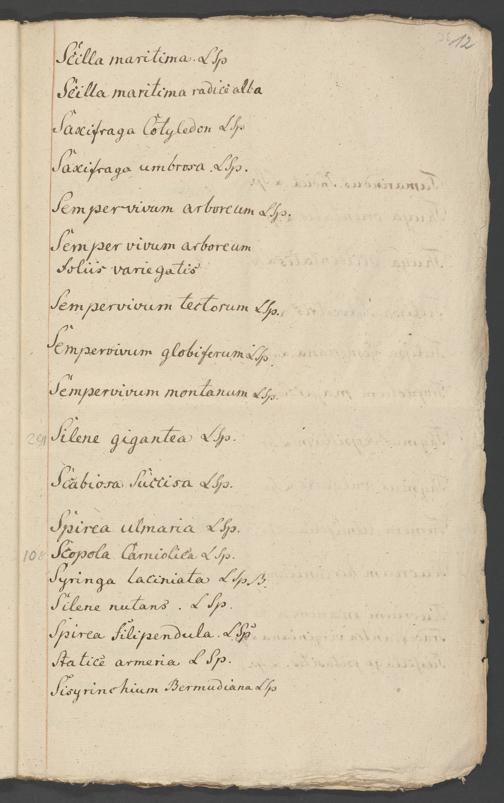 12
Scilla maritima. L Sp
Scilla maritima radice alba
Saxifraga Cotyledon L Sp
Saxifraga umbrosa. L Sp.
Sempervivum arboreum L Sp.
Semper vivum arboreum
foliis variegatis
Sempervivum tectorum L Sp.
Sempervivum globiferum L Sp.
Sempervivum montanum L Sp.
Silene gigantea L Sp.
Scabiosa Succisa L Sp.
Spirea ulmaria L Sp.
Scopola Carniolica L Sp.
Syringa laciniata L Sp. B.
Silene nutans. L Sp.
Spirea filipendula. L Sp
Statice armeria L Sp.
Sisyrinchium Bermudiana L Sp